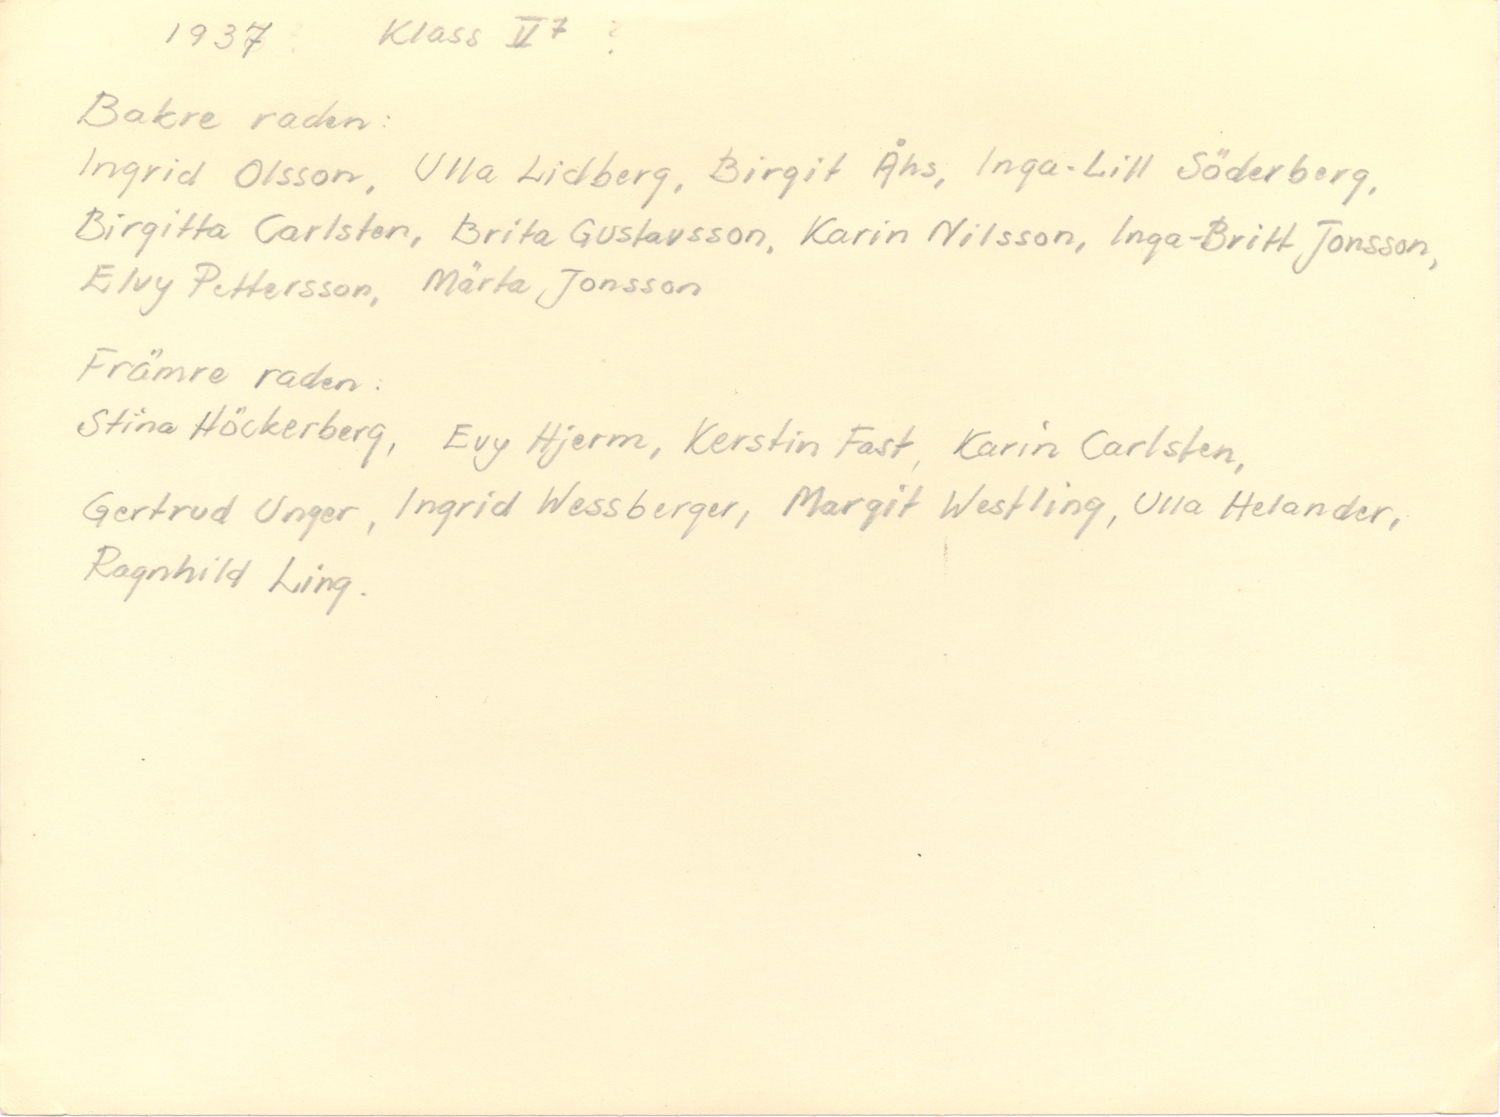 1937 ? Klass V⁷ ?
Bakre raden:
Ingrid Olsson, Ulla Lidberg, Birgit Åhs, Inga-Lill Söderberg,
Birgitta Carlsten, Brita Gustavsson, Karin Nilsson, Inga-Britt Jonsson,
Elvy Pettersson, Märta Jonsson
Främre raden:
Stina Höckerberg, Evy Hjerm, Kerstin Fast, Karin Carlsten,
Gertrud Unger, Ingrid Wessberger, Margit Westling, Ulla Helander,
Ragnhild Ling.